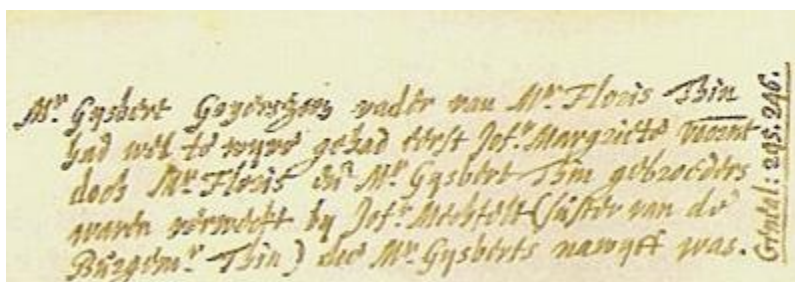 Mr. Gysbert Goyertszoon vader van Mr. Floris Thin
had wel te wyve gehad eerst Jofr. Margriete vuernt
doch Mr. Floris en Mr. Gysbert Thin gebroeders
waren verweckt by Jofr. Mechtelt (suster van de
Burgemr. Thin) die Mr. Gysberts nawyff was.
Geneal: 245. 246.